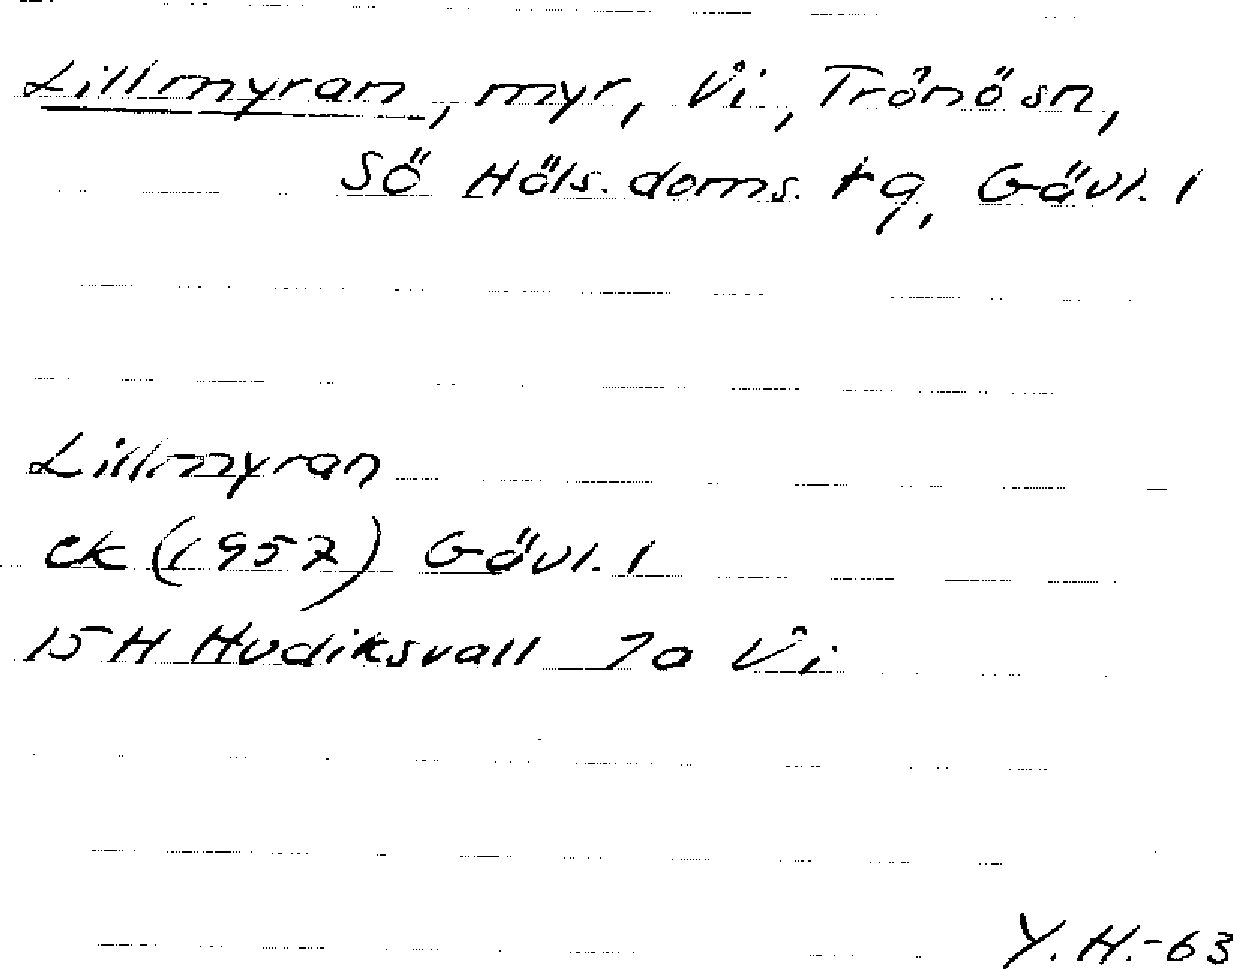 Lillmyran, myr, Vi, Trönö sn,
Sö Häls. doms. tg, Gävl. l
Lillmyran
ek (1957) Gävl. l
15H Hudiksvall 7a Vi
Y.H.-63